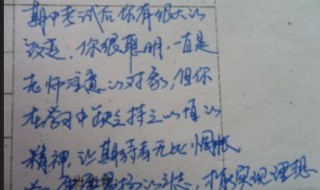 期中考试后你有很大的
改变。你很聪明，一直是
老师注意的对象，但你
在学习中缺乏持之以恒的
精神，让期待者无比惆怅
才能实现理想